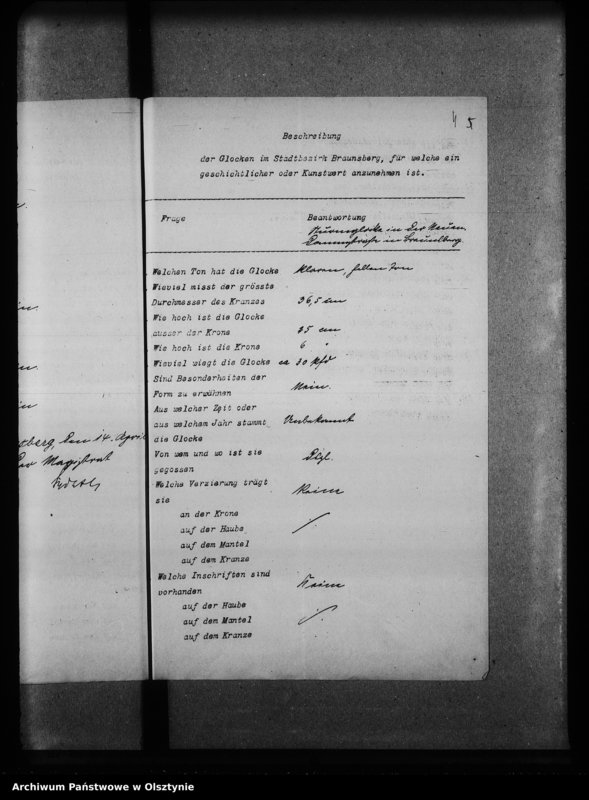 4 5
Beschreibung
der Glocken im Stadtbezirk Braunsberg, für welche ein
geschichtlicher oder Kunstwert anzunehmen ist.
Frage Beantwortung
Turmglocke in der Neuen
Dammstraße in Braunsberg.
Welchen Ton hat die Glocke klaren, hellen Ton
Wieviel misst der grösste
Durchmesser des Kranzes 36,5 cm
Wie hoch ist die Glocke
ausser der Krone 25 cm
Wie hoch ist die Krone 6 "
Wieviel wiegt die Glocke ca 30 Pfd
Sind Besonderheiten der
Form zu erwähnen Nein.
Aus welcher Zeit oder
aus welchem Jahr stammt Unbekannt
die Glocke
Von wem und wo ist sie
gegossen Dtgl.
Welche Verzierung trägt
sie Keine
an der Krone
auf der Haube
auf dem Mantel
auf dem Kranze
Welche Inschriften sind
vorhanden Keine
auf der Haube
auf dem Mantel
auf dem Kranze
berg, den 14. April
Der Magistrat
Archiwum Państwowe w Olsztynie